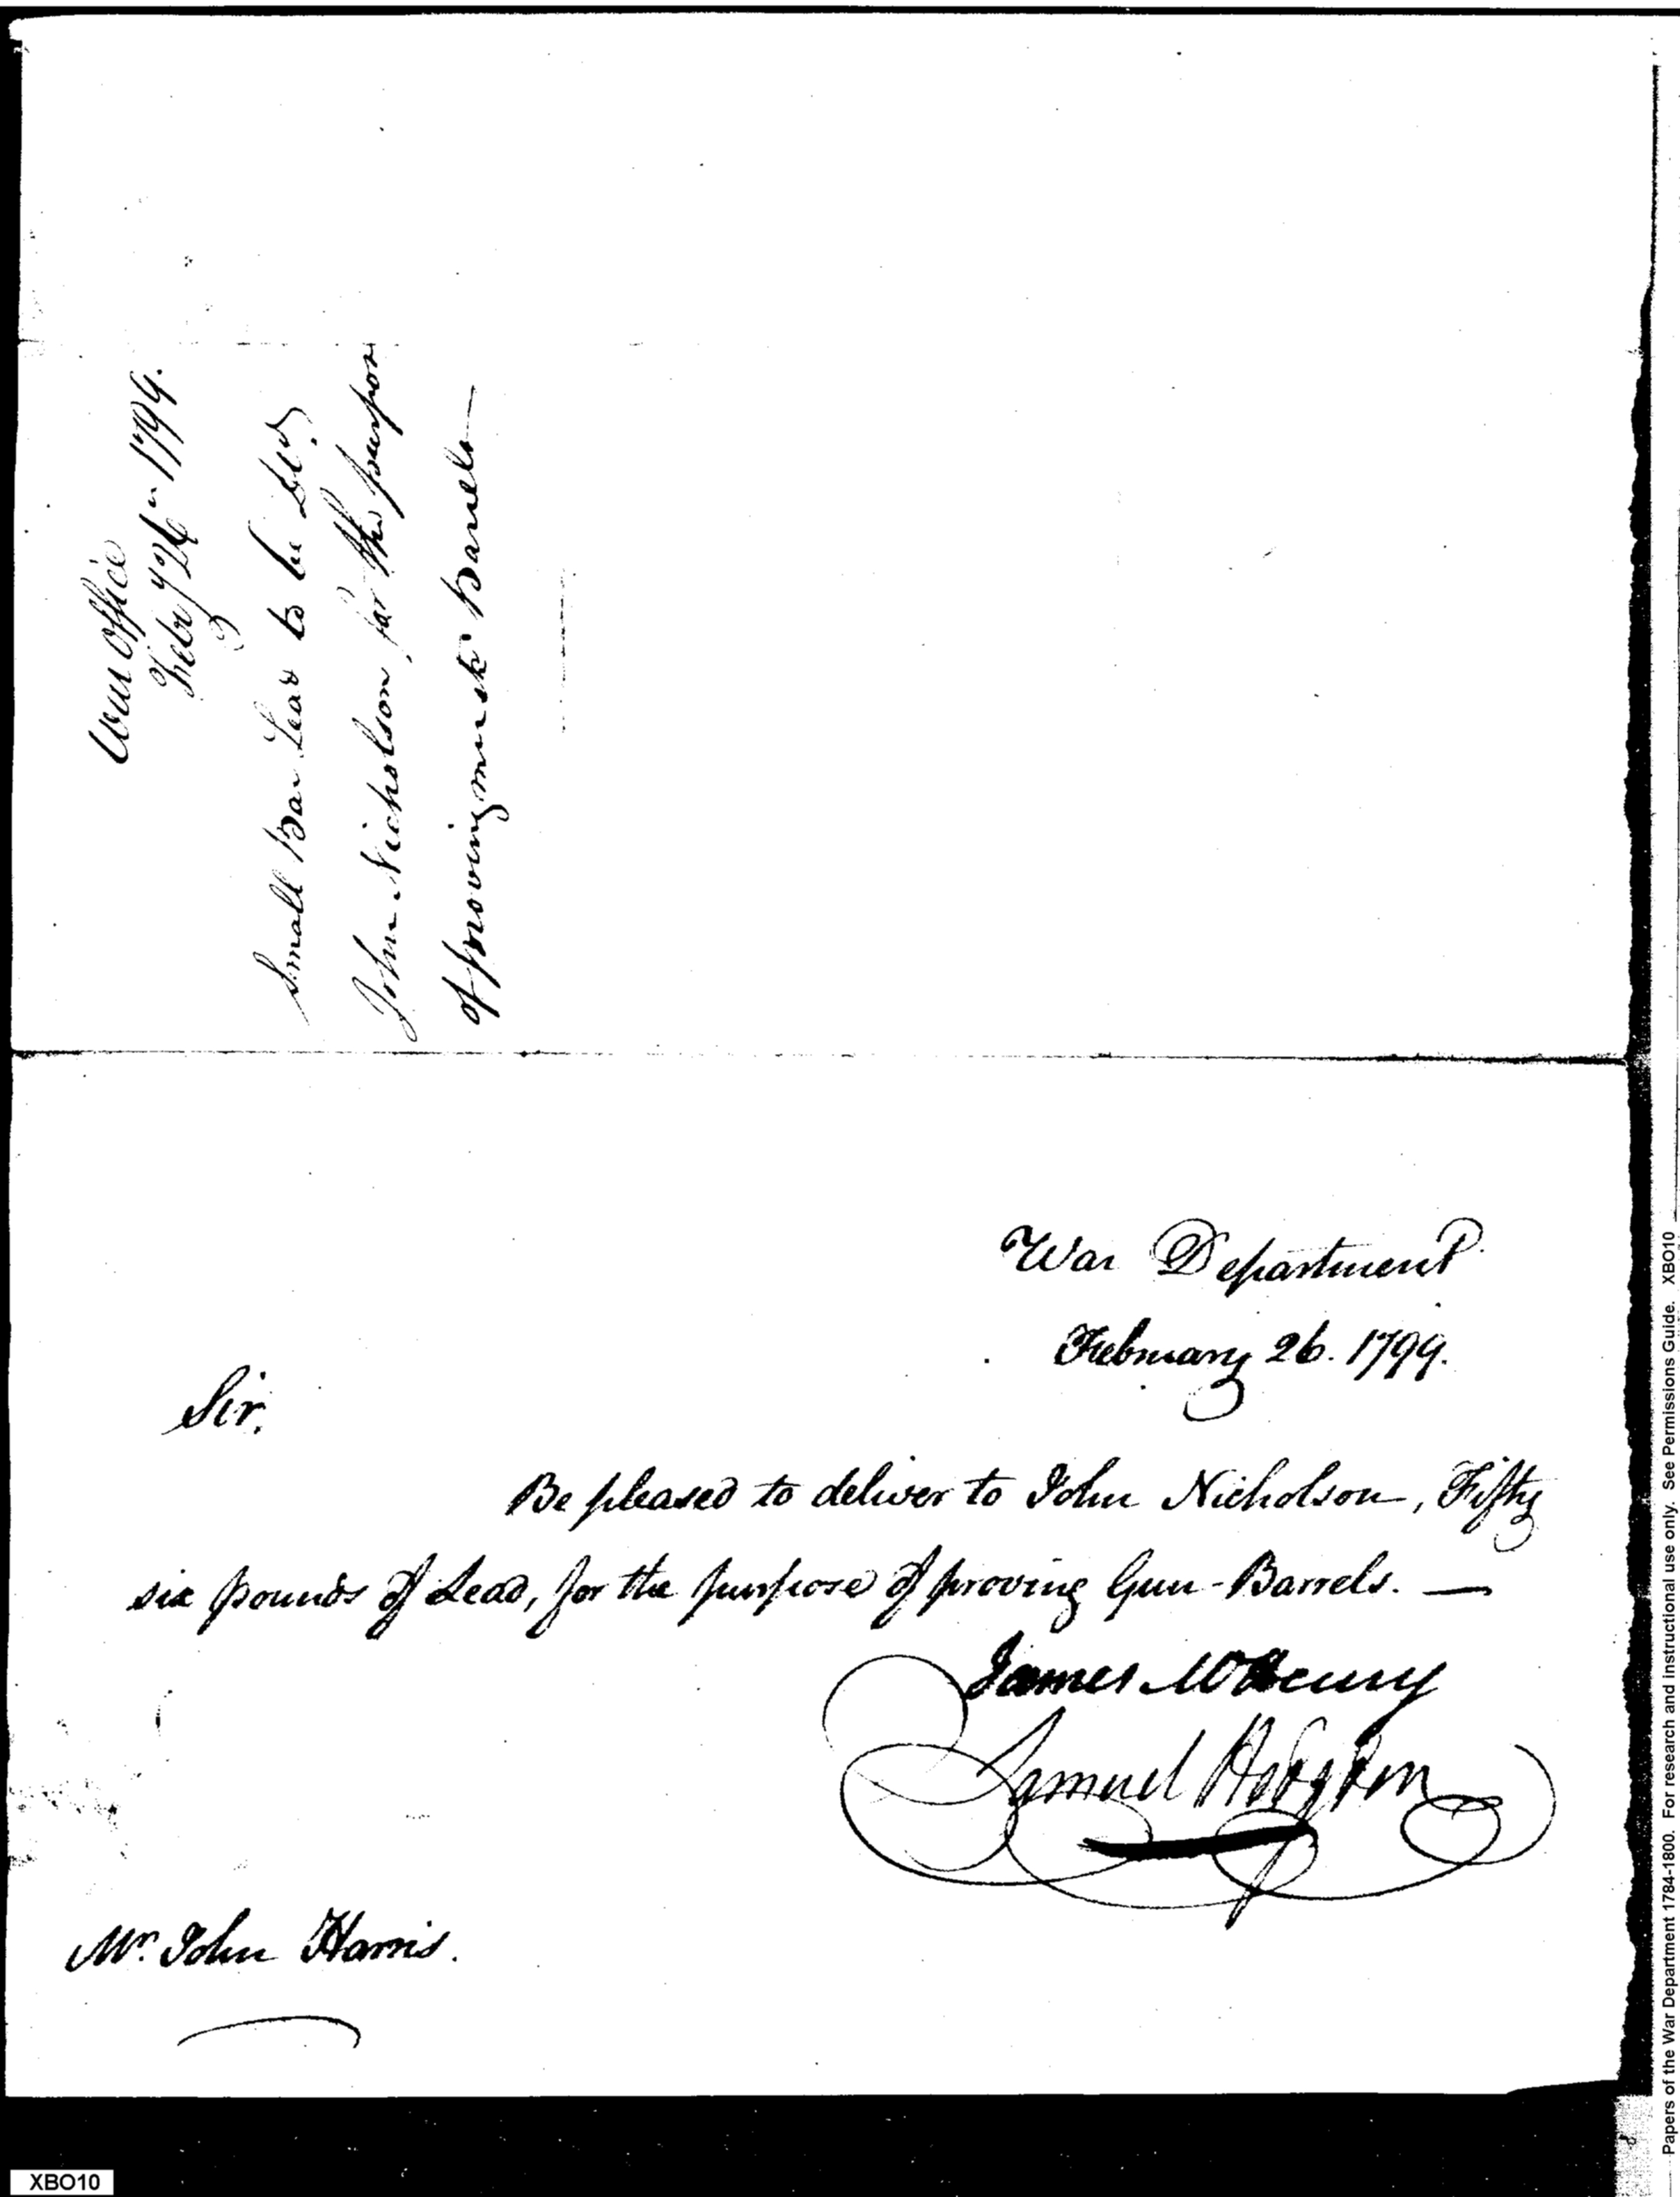 War Office
Feby 26th 1799.
Small Bar Lead to be dd.
John Nicholson for the purpose
of proving musk Barrels
War Department
February 26. 1799.
Sir,
Be pleased to deliver to John Nicholson, Fifty
six pounds of Lead, for the purpose of proving Gun-Barrels. —
James McHenry
Samuel Hodgdon
Mr. John Harris.
XBO10
Papers of the War Department 1784-1800. For research and instructional use only. See Permissions Guide. XBO10